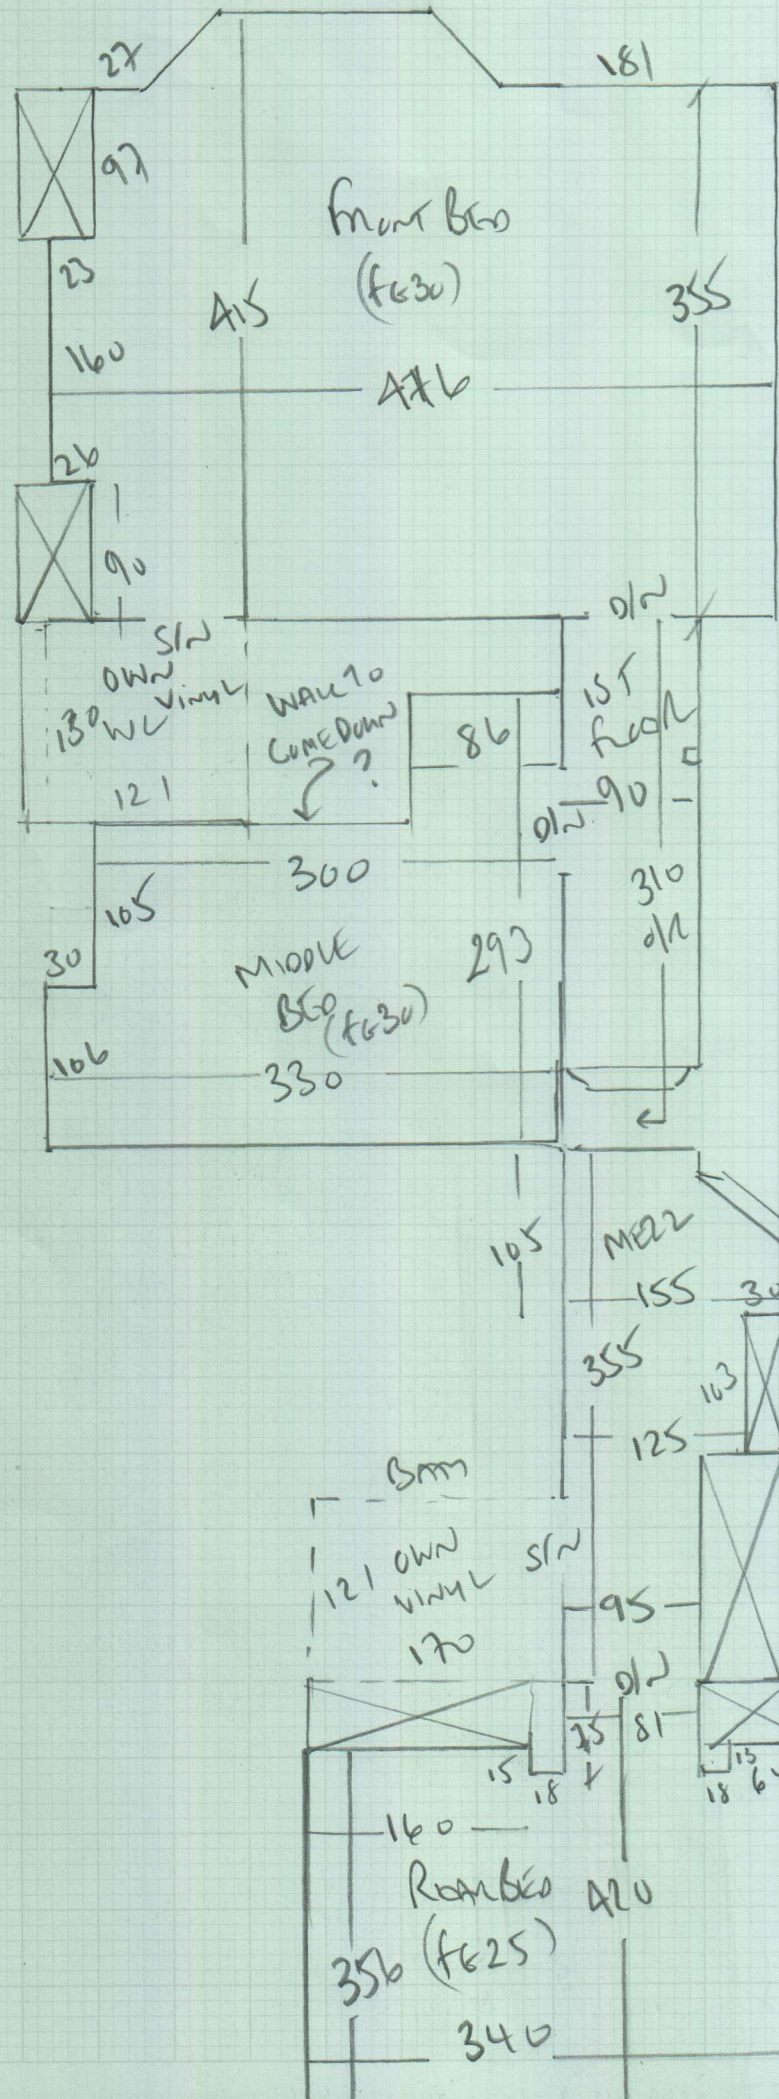 27
181
97
FRONT BED
(FE30)
23
415
355
160
476
26
90
D/N
S/N
OWN
VINYL
130
WC
WALL TO
COME DOWN
?
86
1ST
FLOOR
121
90
D/N
300
310
105
293
30
MIDDLE
BED
(FE30)
106
330
105
MEZZ
155
30
355
103
125
BATH
121
OWN
VINYL
S/N
95
170
D/N
81
15
18
18
160
REAR BED
420
(FE25)
356
340